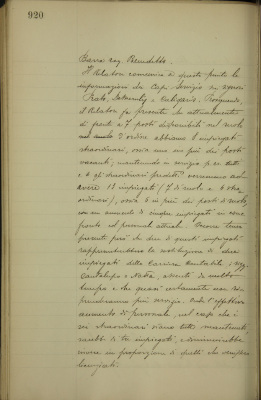 920
Barra rag. Benedetto.
Il Relatore comunica a questo punto le
informazioni dei Capi Servizio
Prato,
il Relatore fa presente che attualmente
di fronte a 7 posti disponibili nel ruolo
d'ordine abbiamo 6 impiegati
straordinari, ossia uno in più dei posti
vacanti; mantenendo in servizio tutti
e 6 gli straordinari predetti verremmo ad
avere 13 impiegati (7 di ruolo e 6 stra
ordinari), ossia 6 in più dei posti di ruolo
con un aumento di cinque impiegati in con
fronto al personale attuale.
presente però che due di questi impiegati
rappresenterebbero la sostituzione di due
impiegati della Carriera Contabile, rag.
Cantalupo e Natoa, assenti da molto
tempo e che quasi certamente non ri
prenderanno più servizio. Onde l'effettivo
aumento di personale, nel caso che i
sei straordinari siano tutti mantenuti,
sarebbe di tre impiegati, e diminuirebbe
invece in proporzione di quelli che venissero
licenziati.